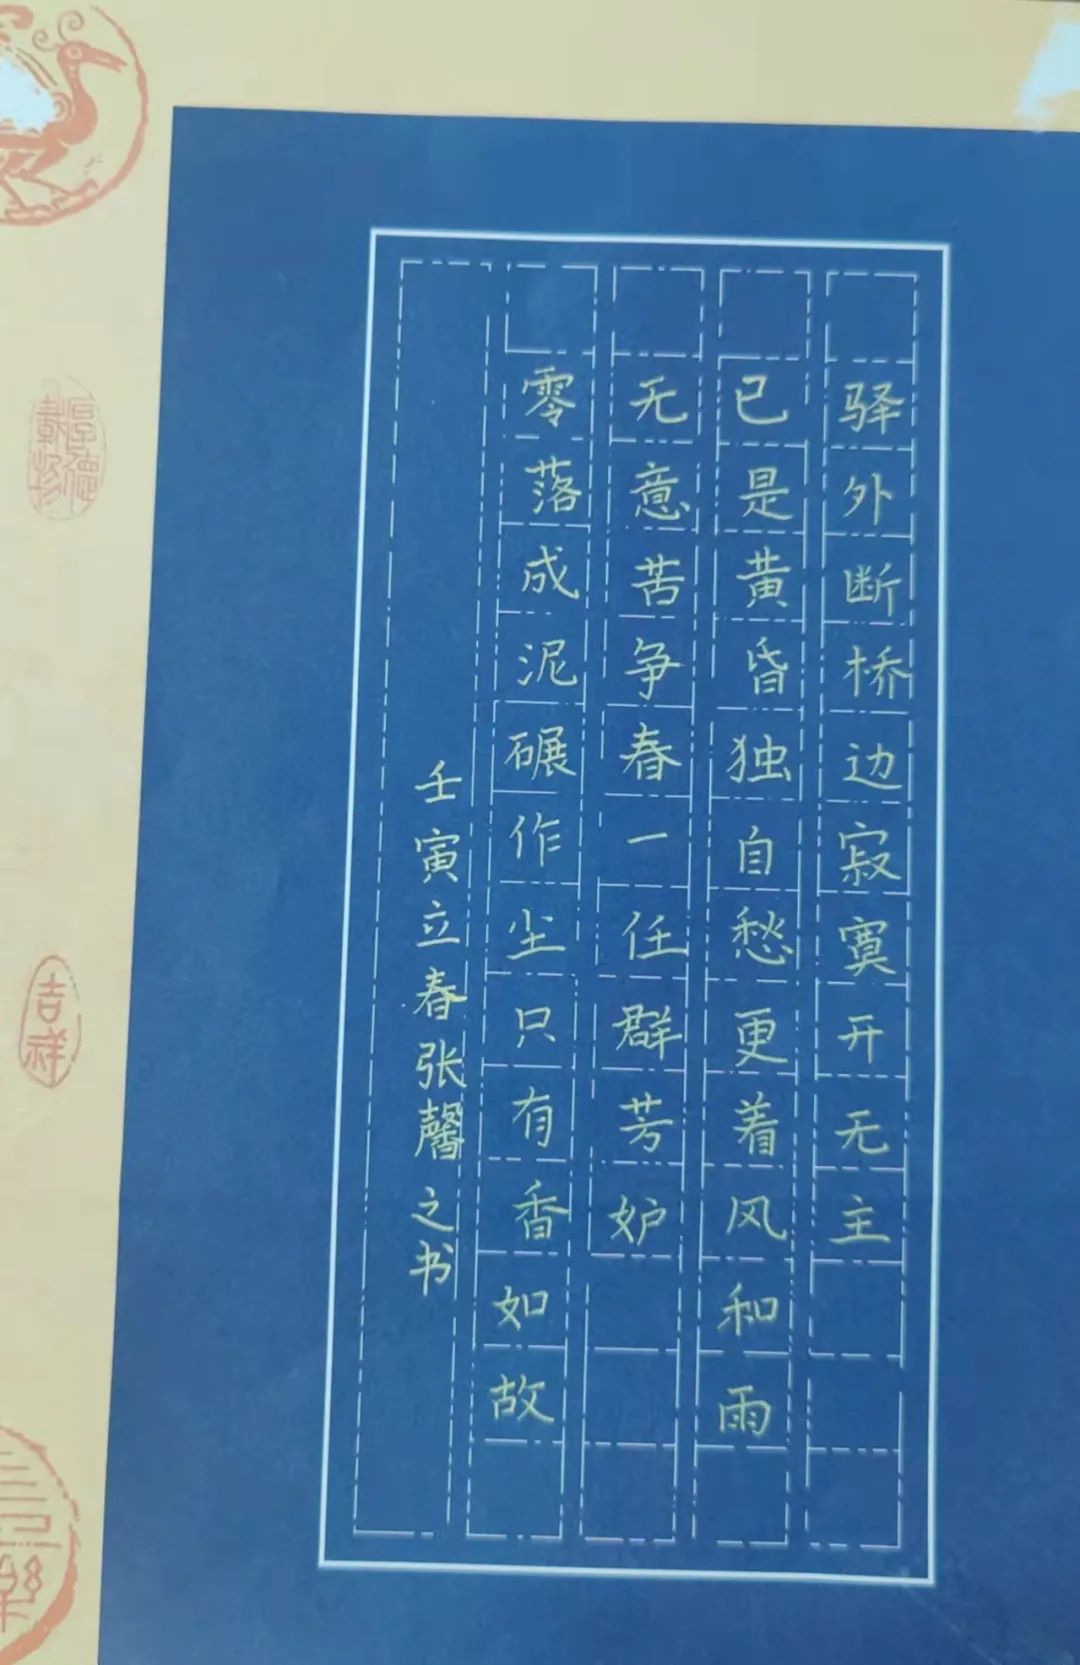 驿外断桥边寂寞开无主
已是黄昏独自愁更着风和雨
无意苦争春一任群芳妒
零落成泥碾作尘只有香如故
壬寅立春张馨之书
厚德载物
吉祥